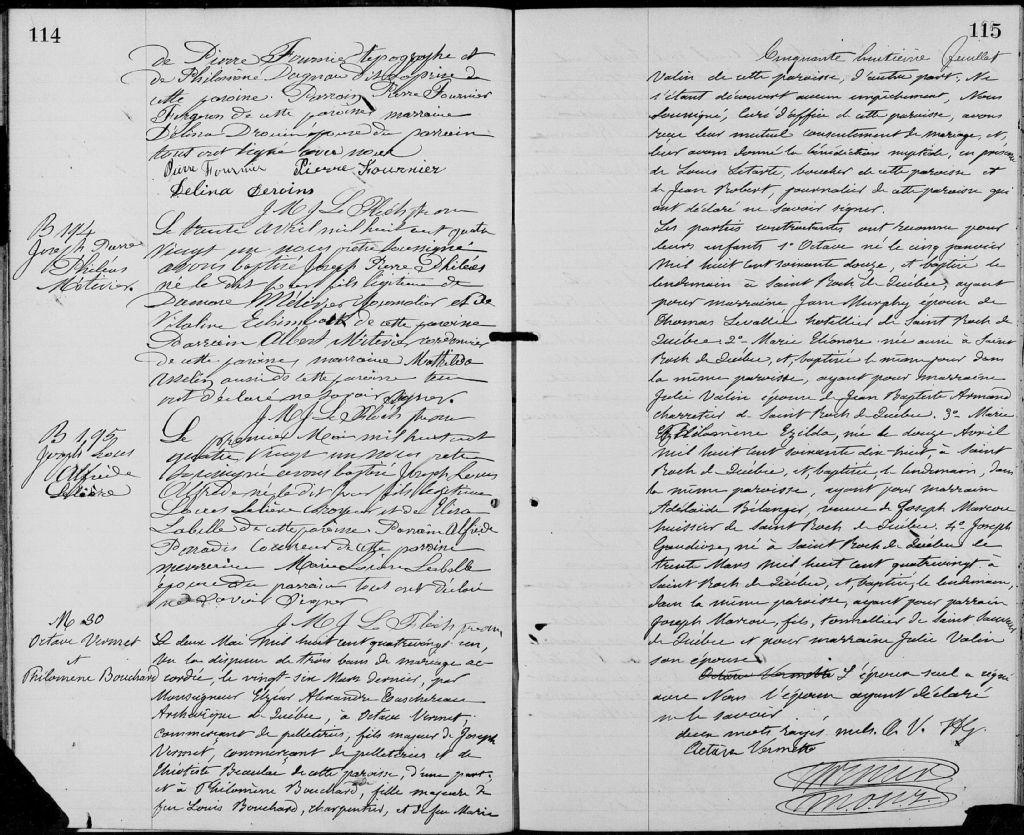 114
de Pierre Fournier typographe et
de Philomène Daignau dit Laprise de
cette paroisse. Parrain Pierre Fournier
de cette paroisse marraine
Délina Drouin épouse du parrain
tout ont signé avec nous
Pierre Fournier Pierre Fournier
Delina Deroins
J. M. J. L.
B 194
Joseph Pierre
Philéas
Métivier
Le trente avril mil huit cent quatre
vingt un nous prêtre soussigné
avons baptisé Joseph Pierre Philéas
né le dit jour fils légitime de
Damase Métivier journalier et de
Vitaline de cette paroisse
Parrain Albert Métivier cordonnier
de cette paroisse marraine Mathilda
Asselin aussi de cette paroisse tous
ont déclaré ne savoir signer.
J. M. J. L.
B 195
Joseph Louis
Alfred
Lelièvre
Le premier Mai mil huit cent
quatre vingt un nous prêtre
soussigné avons baptisé Joseph Louis
Alfred né le dit jour fils légitime
Louis Lelièvre et de Eliza
Labelle de cette paroisse. Parrain Alfred
Paradis de cette paroisse
marraine Marie Labelle
épouse du parrain tous ont déclaré
ne savoir signer
J. M. J. L.
M 30
Octave Vermet
et
Philomène Bouchard
Le deux Mai mil huit cent quatrevingt un,
vu la dispense de trois bans de mariage ac-
cordée, le vingt six Mars dernier, par
Monseigneur Elzéar Alexandre Taschereau
Archevêque de Québec, à Octave Vermet,
commerçant de pelleteries, fils majeur de Joseph
Vermet, commerçant de pelleteries et de
Beaulac de cette paroisse, d'une part,
et à Philomène Bouchard, fille majeure de
feu Louis Bouchard, charpentier, et de feu Marie
115
Cinquante huitième feuillet
Valin de cette paroisse, d'autre part; Ne
s'étant découvert aucun empêchement, Nous
soussigné, curé d'office de cette paroisse, avons
reçu leur mutuel consentement de mariage, et
leur avons donné la bénédiction nuptiale, en présence
de Louis Letarte, boucher de cette paroisse et
de Jean Robert, journalier de cette paroisse qui
ont déclaré ne savoir signer.
Les parties contractantes ont reconnu pour
leurs enfants 1º Octave né le cinq janvier
mil huit cent soixante douze, et baptisé le
lendemain à Saint Roch de Québec, ayant
pour marraine Jane Murphy épouse de
Thomas Levallée hotellier de Saint Roch de
Québec. 2º Marie Eléonore née aussi à Saint
Roch de Québec, et, baptisée le même jour dans
la même paroisse, ayant pour marraine
Julie Valin épouse de Jean Baptiste Armand
charretier de Saint Roch de Québec. 3º Marie
Philomène Ezilda, née le douze Avril
mil huit cent soixante dix huit, à Saint
Roch de Québec, et, baptisée le lendemain, dans
la même paroisse, ayant pour marraine
Adelaïde Bélanger, veuve de Joseph Marcou
huissier de Saint Roch de Québec. 4º Joseph
Gaudiose, né à Saint Roch de Québec le
trente Mars mil huit cent quatrevingt à
Saint Roch de Québec, et, baptisé, le lendemain,
dans la même paroisse, ayant pour parrain
Joseph Marcou, fils, tonnellier de Saint Sauveur
de Québec et pour marraine Julie Valin
son épouse.
Octave Vermette L'époux seul a signé
avec Nous l'épouse ayant déclaré
ne le savoir
deux mots rayés nuls. O. V.
Octave Vermette